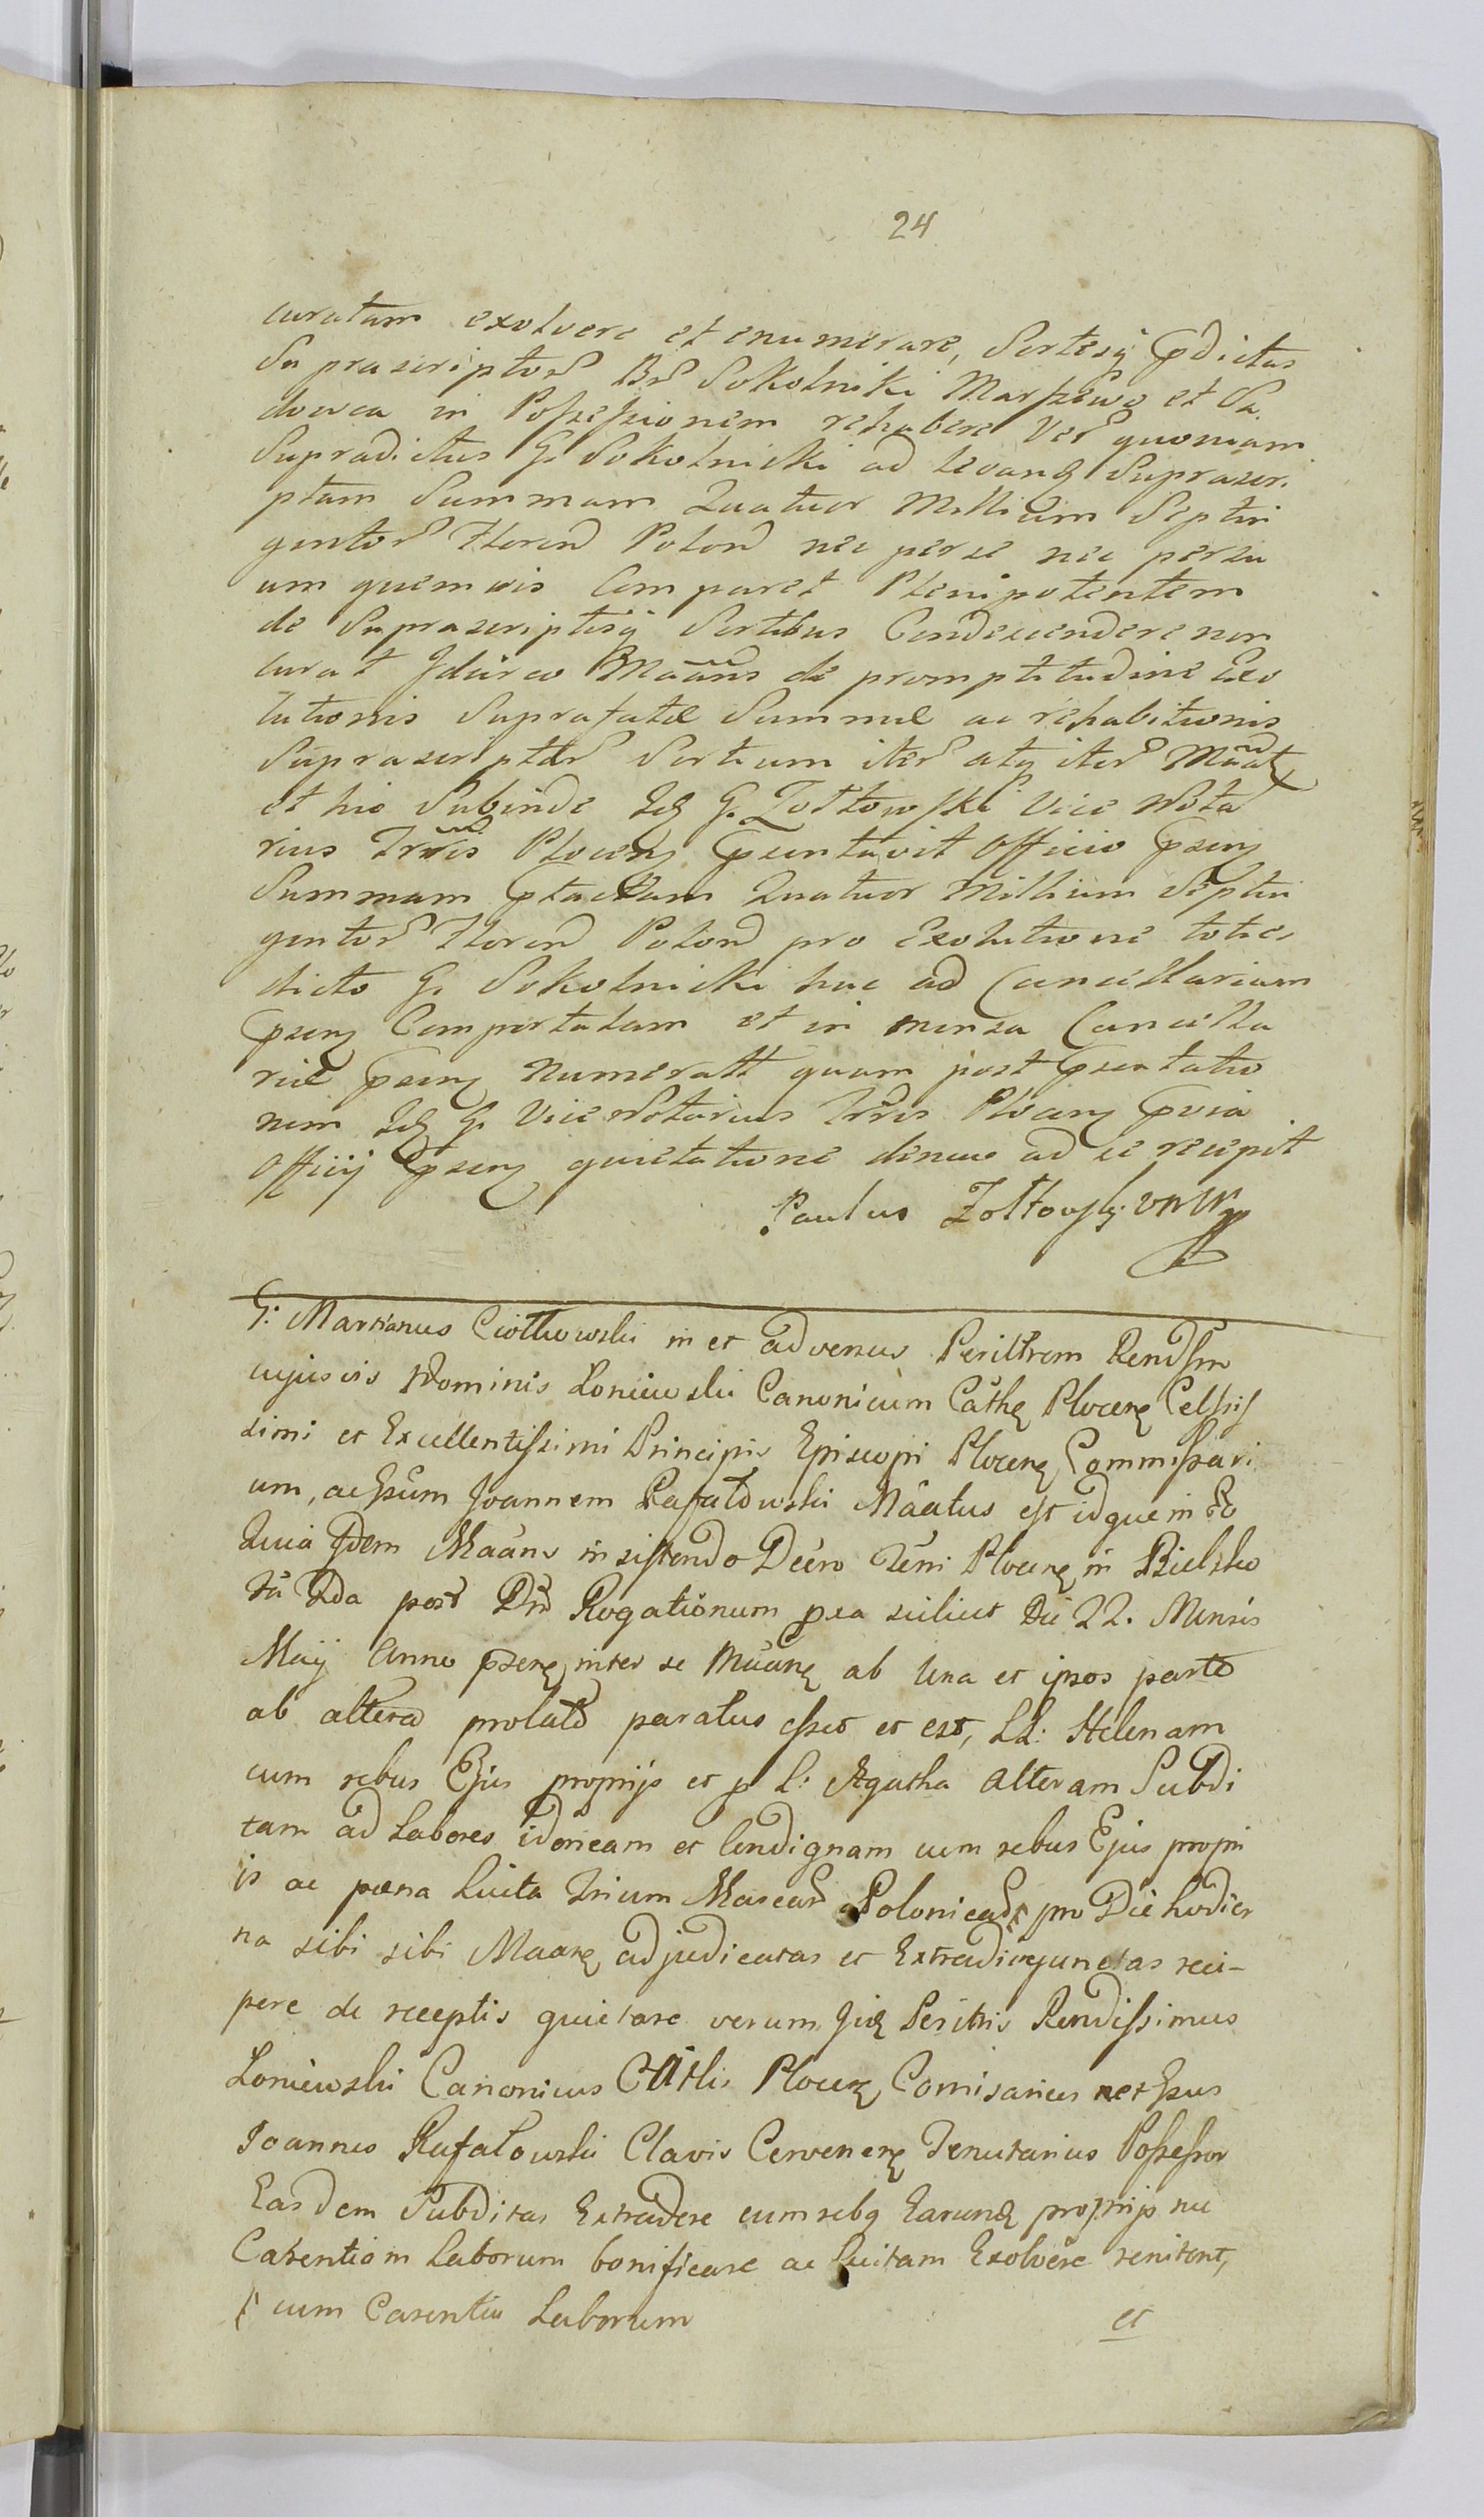 24
curatam exolvere et enumerare, Sortesq pdictas
Suprascriptor Br Sokolniki Marszewo et Sa.
dowca in Possessionem rehabere Ver quoniam
Supradictus G. Sokolnicki ad levand Suprascri.
ptam Summam Quatuor Millium Septin
gentor Floren Polon nec per se nec per su
um quemvis Comparet Plenipotentem
de Suprascriptisq Sortibus Condescendere non
curat Idcirco Maans de promptitudine Exo
lutionis Suprafatæ Summæ ac rehabitionis
Suprascriptar Sortium iter atq iter Maat
et hic Subinde Id G. Zołtowski Vice Nota
rius Trris Plocen psentavit Officio psen
Summam ptactam Quatuor Millium Septin
gentor Floren Polon pro Exolutione toties
dicto G. Sokolnicki huc ad Cancellariam
psen Comportatam et in mensa Cancella
riæ psen numeratt quam post psentatio
nem Id G. Vice Notarius Trris Plocen pvia
Officij psen quietatione denuo ad se recepit
Paulus Zołtowski VNW
G: Martianus Ciołkowski in et adversus Perilltrem Rendssm
cujusvis Nominis Loniewski Canonicum Cathe Plocen Celssis
simi et Excellentissimi Principis Episcopi Plocen Commissari
um, ac Gsum Joannem Rafałowski Maatus est idque in Eo
Quia Idem Maans insistendo Decro Terri Plocen in Bielsko
Fa 2da post Dni Rogationum pxa scilicet Die 22. Mensis
Maij Anno psen inter se Maan ab una et ipsos parte
ab altera prolato paratus esset et est, LL: Helenam
cum rebus Ejus proprijs et p L: Agatha alteram Subdi
tam ad Labores idoneam et Condignam cum rebus Ejus propri
is ac pæna Luita Trium Marcar Polonicar pro Die hodier
na sibi sibi Maan adjudicatas et Extradi injunctas reci-
pere de receptis quietare verum Iid Perilltris Rendissimus
Loniewski Canonicus Cathlis Plocen Comisarius et Gsus
Joannes Rafałowski Clavis Cerwenen Tenutarius Possessor
Easdem Subditas Extradere cum rebq Earund proprijs nec
Carentiam Laborum bonificare ac Luitam Exolvere renitent,
cum Carentia Laborum
et